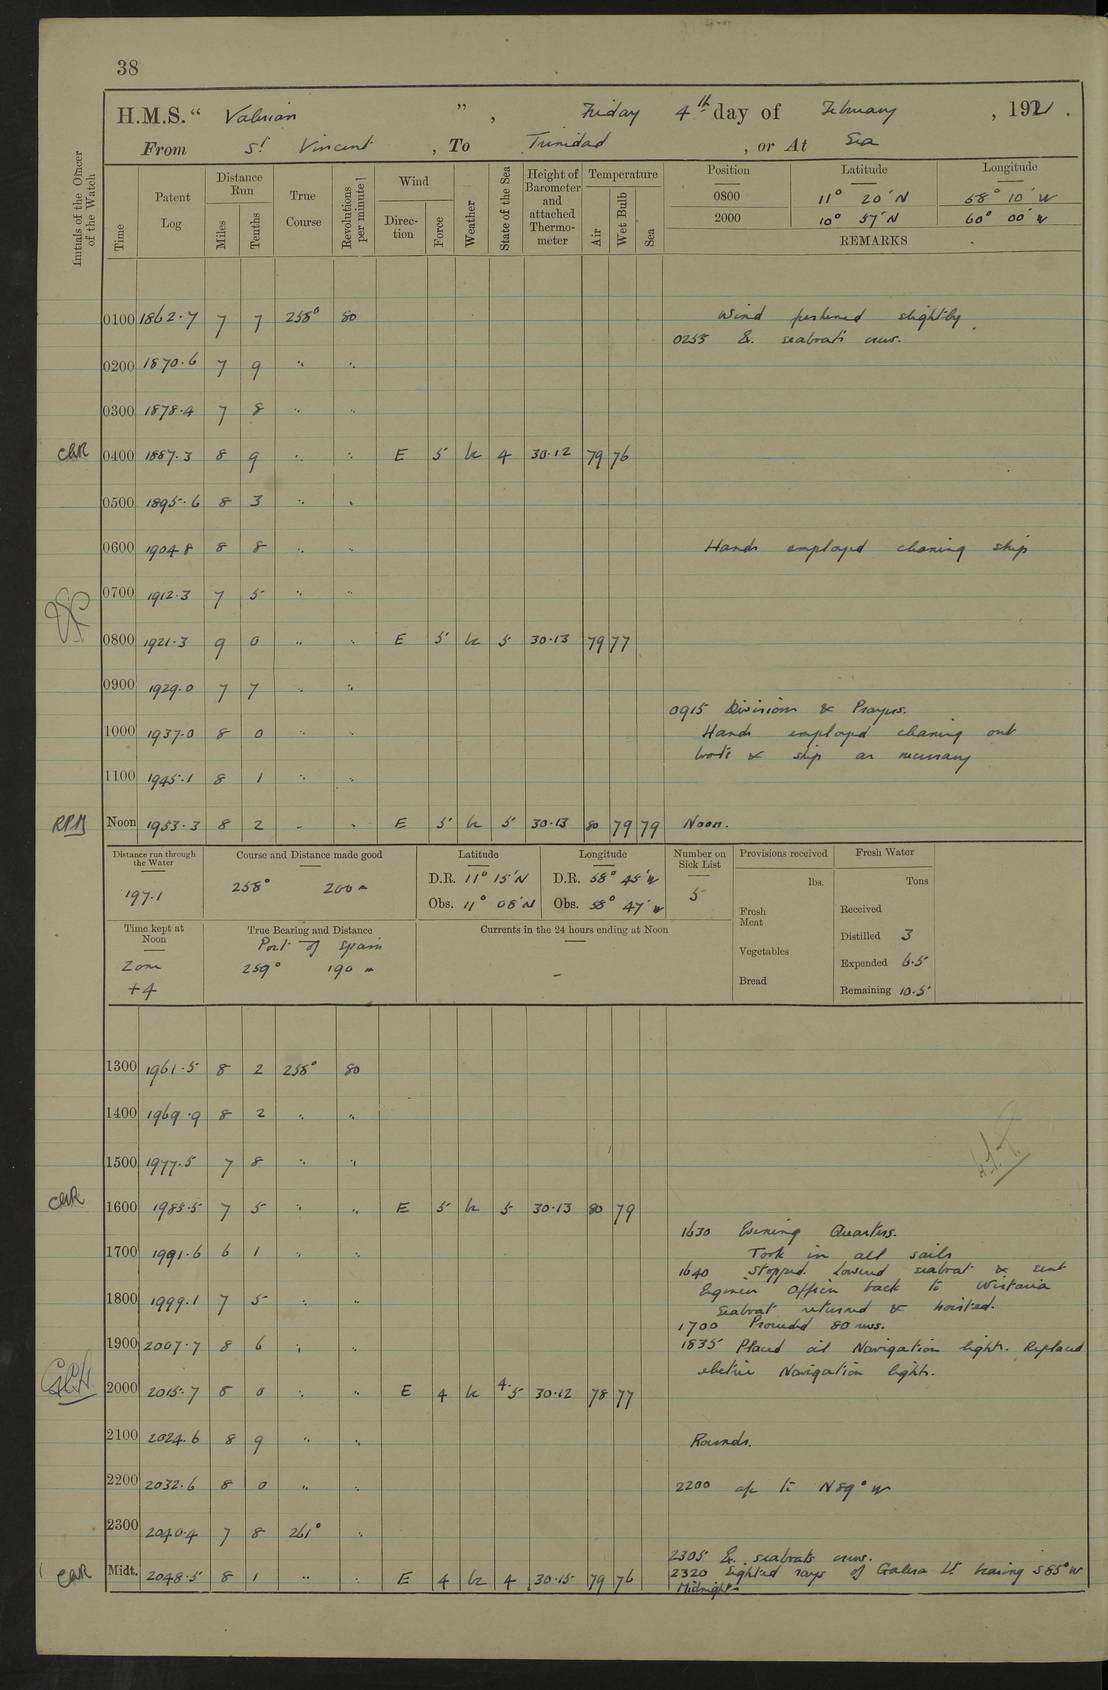 38
H.M.S. " Valerian ", Friday 4th day of February, 192
From St Vincent, To Trinidad, or At Sea
Initials of the Officer of the Watch
Time
Patent Log
Distance Run
Miles
Tenths
True Course
Revolutions per minute
Wind
Direction
Force
Weather
State of the Sea
Height of Barometer and attached Thermometer
Temperature
Air
Wet Bulb
Sea
Position Latitude Longitude
0800 11° 20' N 58° 10' W
2000 10° 57' N 60° 00' W
REMARKS
0100 1862.7 7 7 258° 80 Wind freshened slightly.
0255 Ex. seaboat's crew.
0200 1870.6 7 9 " "
0300 1878.4 7 8 " "
0400 1887.3 8 9 " " E 5 bc 4 30.12 79 76
0500 1895.6 8 3 " "
0600 1904.8 8 8 " " Hands employed cleaning ship
0700 1912.3 7 5 " "
0800 1921.3 9 0 " " E 5 bc 5 30.13 79 77
0900 1929.0 7 7 " "
0915 Divisions & Prayers.
1000 1937.0 8 0 " " Hands employed cleaning out
boats & ship as necessary
1100 1945.1 8 1 " "
RPM Noon 1953.3 8 2 " " E 5 bc 5 30.13 80 79 79 Noon.
Distance run through the Water
197.1
Course and Distance made good
258° 200 m
Latitude
D.R. 11° 15' N
Obs. 11° 08' N
Longitude
D.R. 58° 45' W
Obs. 58° 47' W
Number on Sick List
5
Provisions received
lbs.
Fresh Meat
Vegetables
Bread
Fresh Water
Tons
Received
Distilled 3
Expended 6.5
Remaining 10.5
Time kept at Noon
Zone
+4
True Bearing and Distance
Port of Spain
259° 190 m
Currents in the 24 hours ending at Noon
-
1300 1961.5 8 2 258° 80
1400 1969.9 8 2 " "
1500 1977.5 7 8 " "
1600 1985.5 7 5 " " E 5 bc 5 30.13 80 79
1630 Evening Quarters.
1700 1991.6 6 1 " " Took in all sails
1640 Stopped. Lowered seaboat & sent
Engineer Officer back to Wistaria
1800 1999.1 7 5 " " Seaboat returned & hoisted.
1700 Proceeded 80 revs.
1900 2007.7 8 6 " " 1835 Placed oil Navigation lights. Replaced
electric Navigation lights.
2000 2015.7 8 0 " " E 4 bc 4.5 30.12 78 77
2100 2024.6 8 9 " " Rounds.
2200 2032.6 8 0 " " 2200 a/c to N89°W
2300 2040.4 7 8 261° "
2305 Ex. seaboats crew.
Midt. 2048.5 8 1 " " E 4 bc 4 30.15 79 76 2320 Sighted rays of Galera Lt bearing S85°W
Midnight